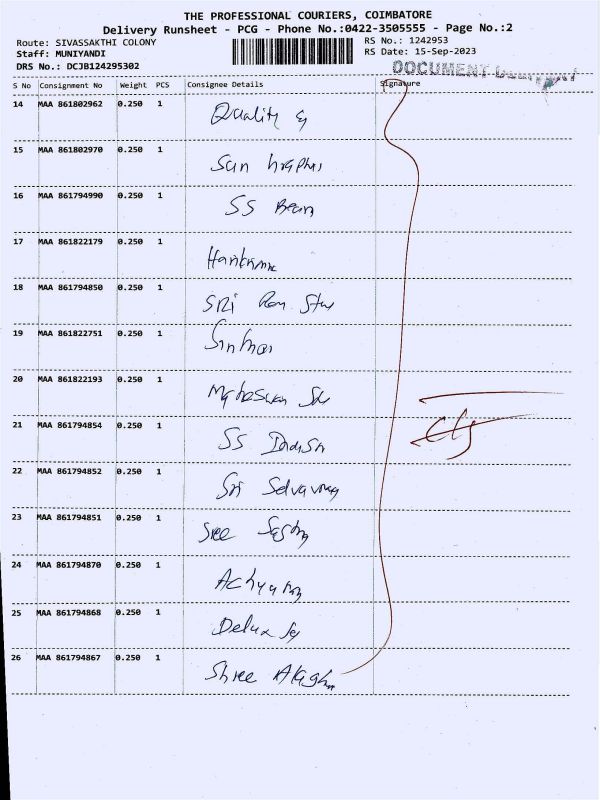 THE PROFESSIONAL COURIERS, COIMBATORE
Delivery Runsheet - PCG - Phone No.:0422-3505555 - Page No.:2
Route: SIVASSAKTHI COLONY
Staff: MUNIYANDI
DRS No.: DCJB124295302
RS No.: 1242953
RS Date: 15-Sep-2023
DOCUMENT
S No Consignment No Weight PCS Consignee Details Signature
14 MAA 861802962 0.250 1 Quality
15 MAA 861802970 0.250 1 Sun
16 MAA 861794990 0.250 1 SS
17 MAA 861822179 0.250 1
18 MAA 861794850 0.250 1 SRi
19 MAA 861822751 0.250 1
20 MAA 861822193 0.250 1
21 MAA 861794854 0.250 1 SS
22 MAA 861794852 0.250 1 Sri
23 MAA 861794851 0.250 1 Sree
24 MAA 861794870 0.250 1
25 MAA 861794868 0.250 1 Delux
26 MAA 861794867 0.250 1 Shree